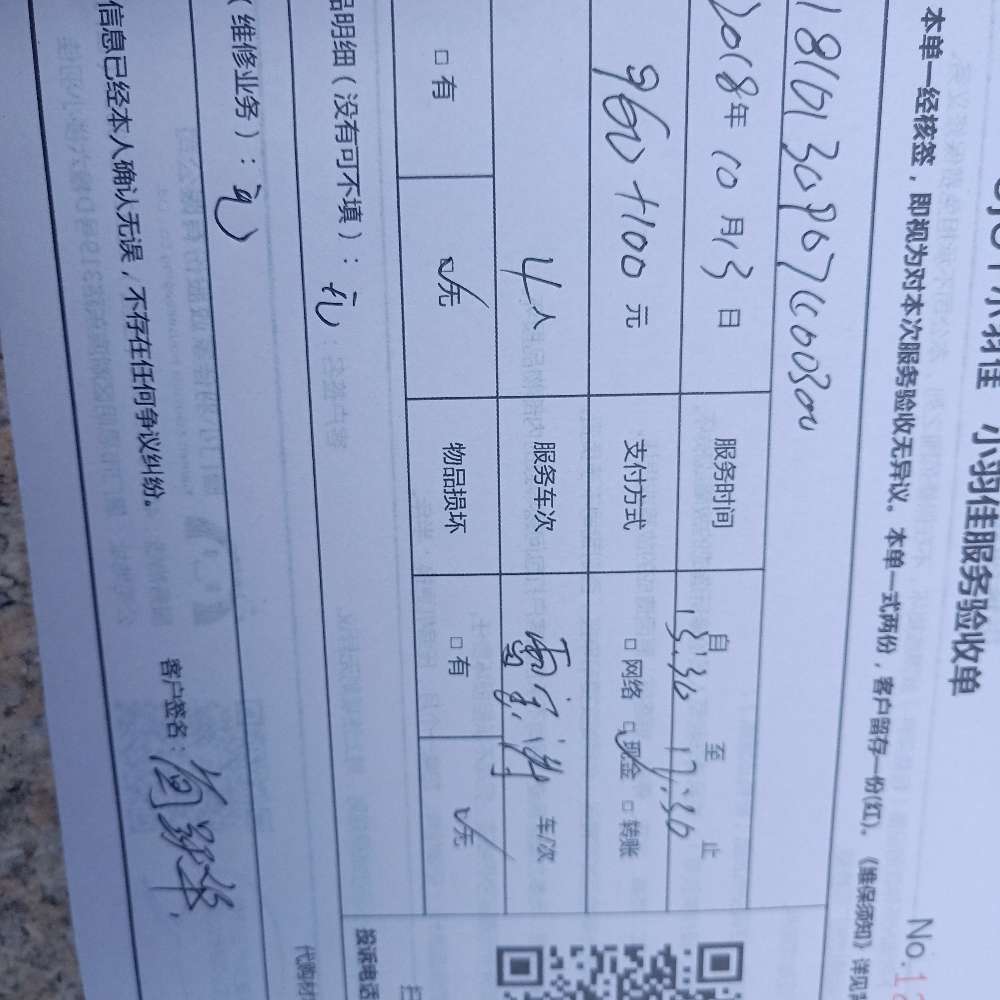 小羽佳 小羽佳服务验收单
No.1
本单一经核签，即视为对本次服务验收无异议。本单一式两份，客户留存一份(红)。《维保须知》详见
2018年10月13日 服务时间 自13:30至17:30止
960+100元 支付方式 □网络 ☑现金 □转账
4人 服务车次 车/次
□有 ☑无 物品损坏 □有 ☑无
品明细(没有可不填)：无
投诉电话
(维修业务)：无
代购材
信息已经本人确认无误，不存在任何争议纠纷。
客户签名：